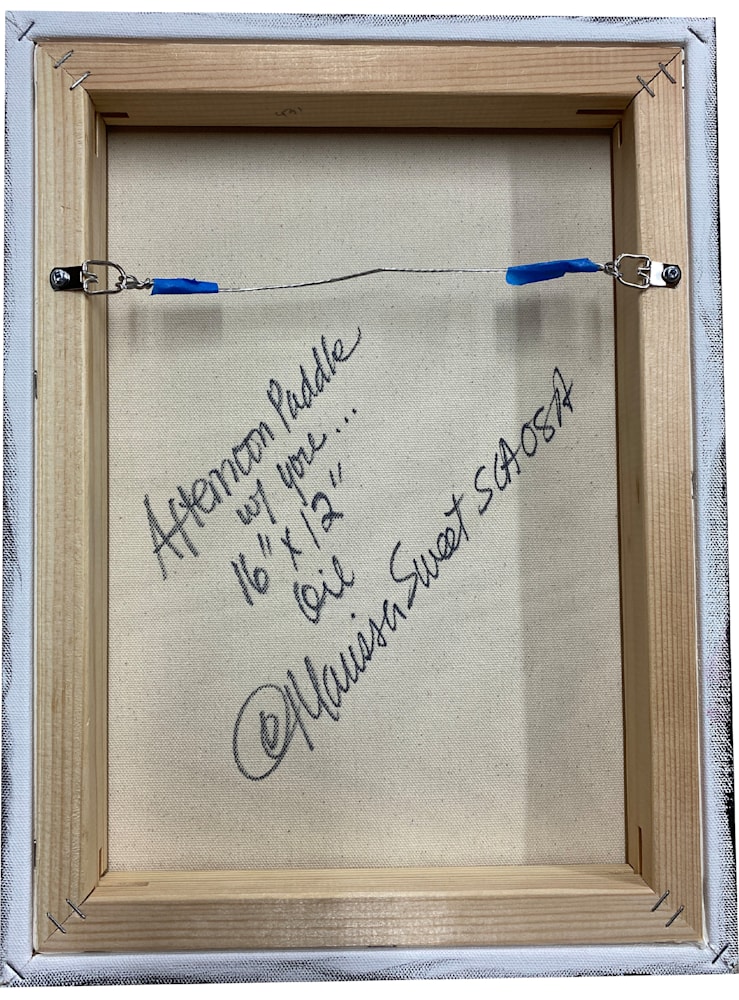 Afternoon Paddle
w/ you...
16" x 12"
Oil
©Marissa Sweet SCA OSA